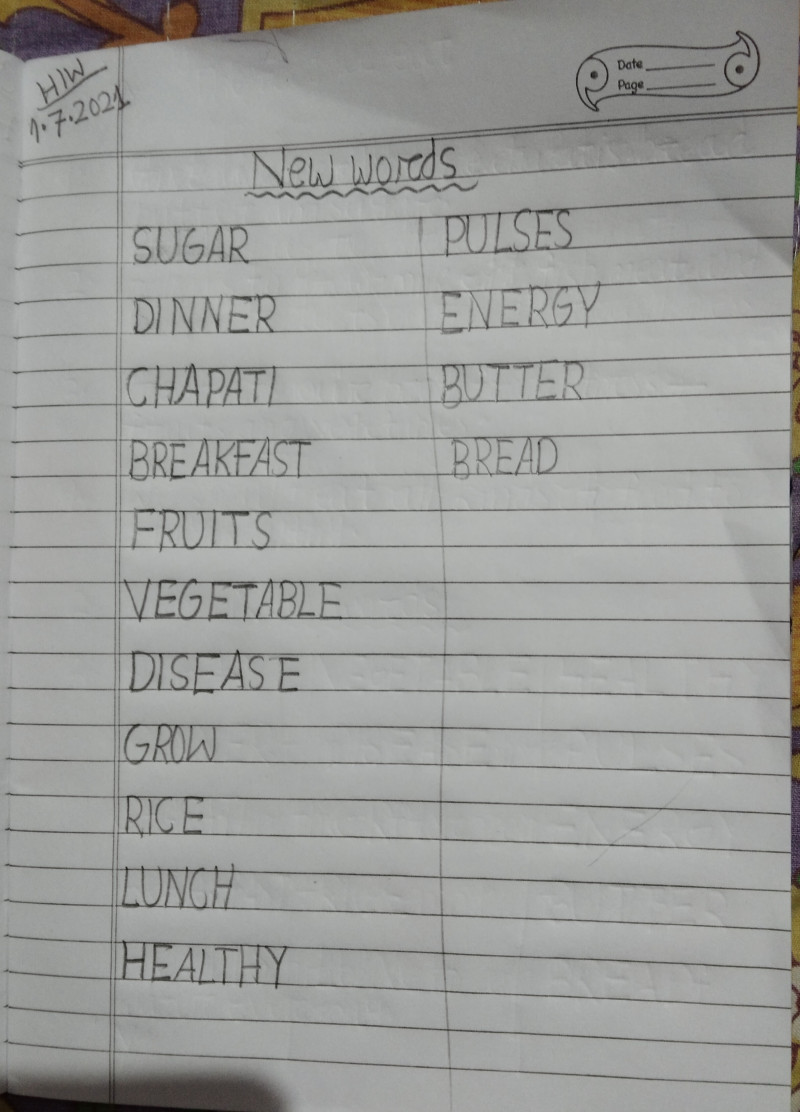 H/W
1.7.2021
Date
Page
New words
SUGAR
DINNER
CHAPATI
BREAKFAST
FRUITS
VEGETABLE
DISEASE
GROW
RICE
LUNCH
HEALTHY
PULSES
ENERGY
BUTTER
BREAD